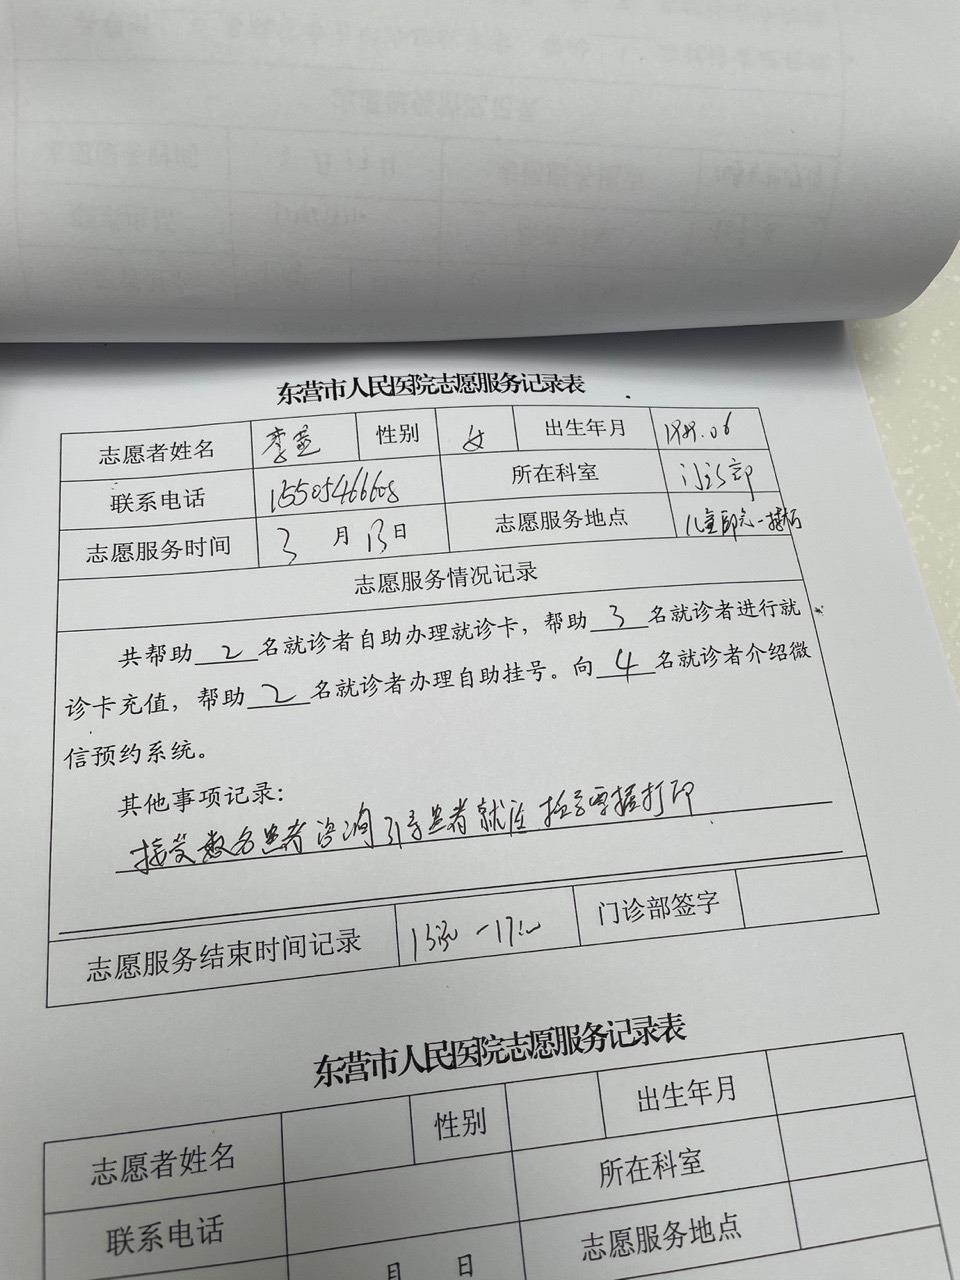 东营市人民医院志愿服务记录表
志愿者姓名 李 性别 女 出生年月 1989.06
联系电话 15505466608 所在科室 门诊部
志愿服务时间 3 月 13 日 志愿服务地点 儿童医院一楼
志愿服务情况记录
共帮助 2 名就诊者自助办理就诊卡，帮助 3 名就诊者进行就
诊卡充值，帮助 2 名就诊者办理自助挂号。向 4 名就诊者介绍微
信预约系统。
其他事项记录：
接受数名患者咨询 引导患者就诊 打印
志愿服务结束时间记录 门诊部签字
东营市人民医院志愿服务记录表
志愿者姓名 性别 出生年月
联系电话 所在科室
月 日 志愿服务地点